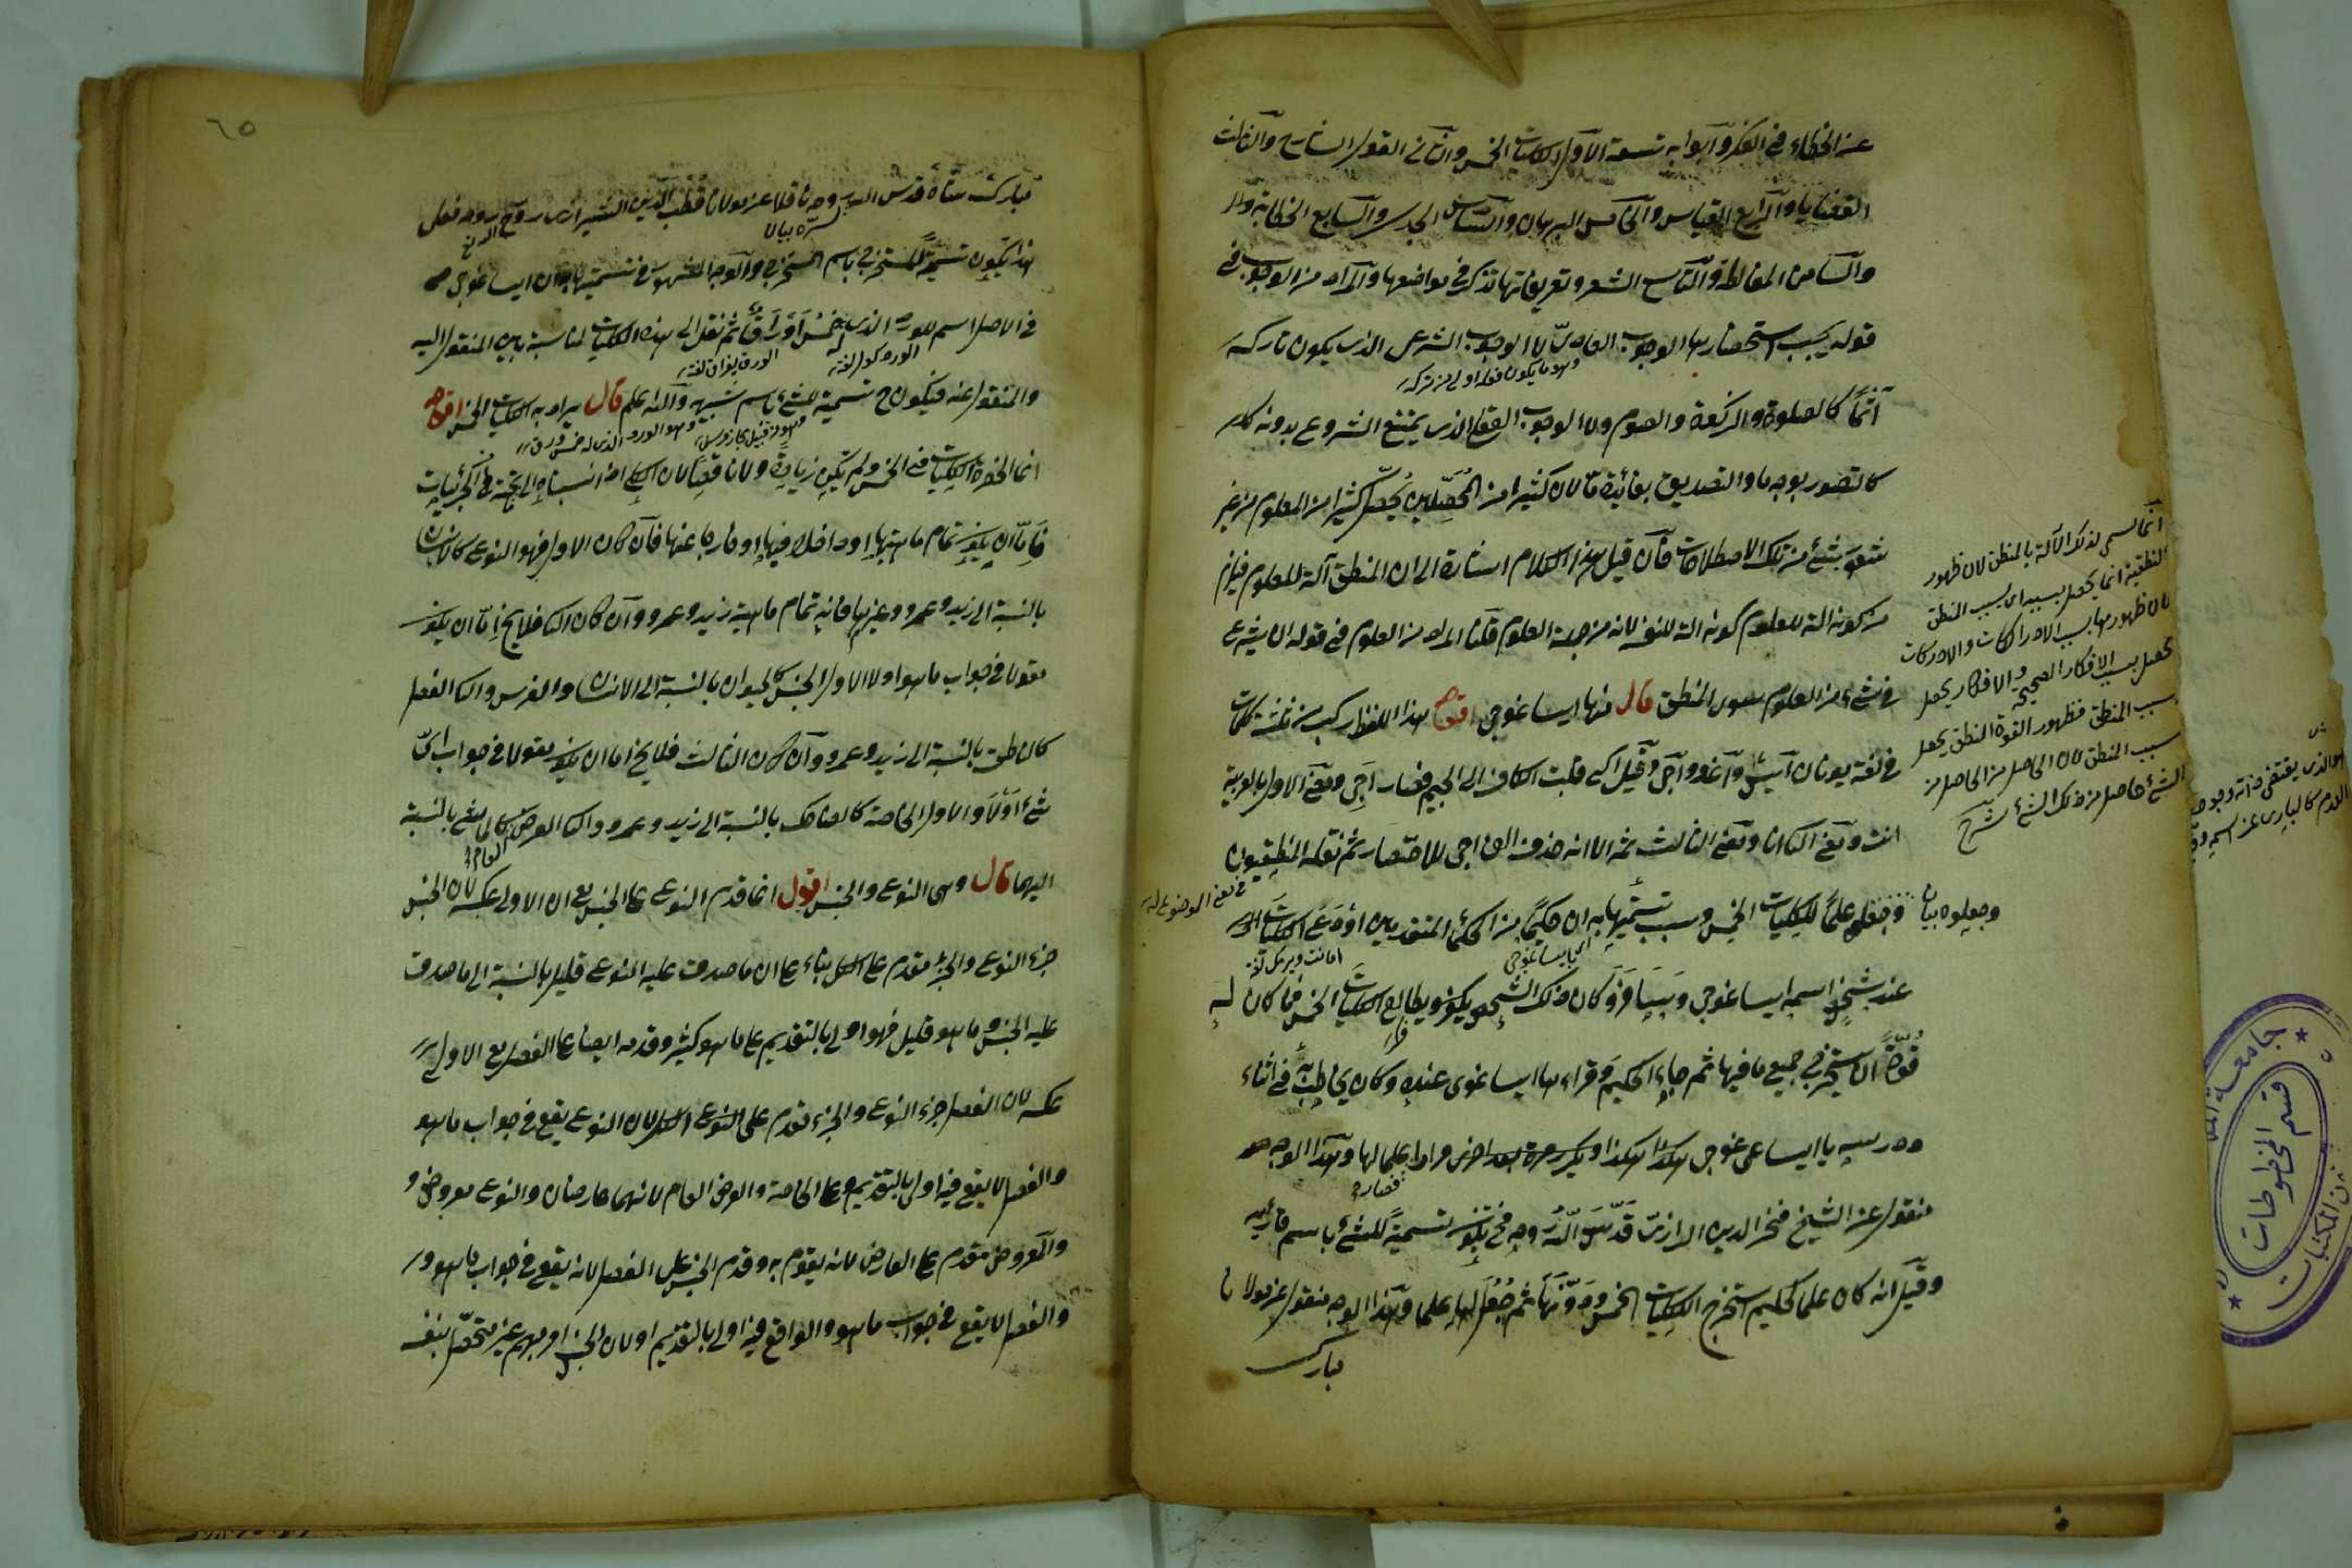 عن الخطاء في الفكر وابوابه تسعة الاول الكليات الخمس والثاني القول الشارح والثالث
القضايا والرابع القياس والخامس البرهان والسادس الجدل والسابع الخطابة
والثامن المغالطة والتاسع الشعر وتعريفاتها تذكر في مواضعها والمراد من الوجوب في
قوله يجب استحضارها الوجوب العادي لا الوجوب الشرعي الذي يكون تاركه
وهو ما يكون فعله اولى من تركه
آثما كالصلوة والزكوة والصوم ولا الوجوب العقلي الذي يمتنع الشروع بدونه
كالتصور بوجه ما والتصديق بفائدة ما لان كثيرا من المحصلين يحصل كثيرا من العلوم من غير
شعور بشئ من تلك الاصطلاحات فان قيل هذا الكلام اشارة الى ان المنطق آلة للعلوم فيلزم
من كونه آلة للعلوم كونه آلة لنفسه لانه من جملة العلوم قلنا المراد من العلوم في قوله
في شئ من العلوم سوى المنطق قال فمنها ايساغوجي اقول هذا اللفظ مركب من ثلثة كلمات
في لغة يونان ايس واغو واجي وقيل اكي قلبت الكاف الى الجيم فصار اجي ومعنى الاول بالعربية
انت ومعنى الثاني انا ومعنى الثالث ثمه الا انه حذف الف اجي للاختصار ثم نقله المنطقيون
وجعلوه علما للكليات الخمس وسبب تسميتها به ان حكيما من الحكماء المتقدمين اودع الكليات
عند شخص اسمه ايساغوجي وسافر وكان ذلك الشخص يطالع الكليات الخمس فما كان له
قوة ان يستخرج جميع ما فيها ثم جاء الحكيم وقراءها ايساغوجي عنده وكان يخاطبه في اثناء
درسه يا ايساغوجي هكذا هكذا ويكرر مرة بعد اخرى فصار علما لها وهذا الوجه
منقول عن الشيخ فخر الدين الرازي قدس الله روحه فح يكون تسمية للشئ باسم قارئه
وقيل انه كان علما لحكيم استخرج الكليات الخمس ودونها ثم جعل لها علما وهذا الوجه منقول عن مولانا
مبارك
انما سمي لذلك الآلة بالمنطق لان ظهور
النطقية انما يحصل بسببه اي بسبب المنطق
لان ظهورها بسبب الادراكات والادراكات
تحصل بسبب الافكار الصحيحة والافكار يحصل
بسبب المنطق فظهور القوة النطق يحصل
بسبب المنطق لان الحاصل من الحاصل من
الشئ حاصل من ذلك الشئ شرح
جامعة
قسم المخطوطات
المكتبات
٦٥
مبارك شاه قدس الله روحه ناقلا عن مولانا قطب الدين الشيرازي روح روحه فعلى
هذا يكون تسمية المستخرج باسم المستخرج والوجه المشهور في تسميتها به ان ايساغوجي
في الاصل اسم للورد الذي له خمس اوراق ثم نقل الى هذه الكليات لمناسبة بين المنقول اليه
والمنقول عنه فيكون ح تسمية الشئ باسم شبهه والله اعلم قال يراد به الكليات الخمس اقول
انما انحصرت الكليات في الخمس ولم تكن زيادة ولا ناقصا لان الكلي اذا نسبناه الى ما تحته من الجزئيات
فاما ان يكون تمام ماهيتها او داخلا فيها او خارجا عنها فان كان الاول فهو النوع كالانسان
بالنسبة الى زيد وعمرو وغيرهما فانه تمام ماهية زيد وعمرو وان كان الثاني فلا يخ اما ان يكون
مقولا في جواب ما هو اولا الاول الجنس كالحيوان بالنسبة الى الانسان والفرس والثاني الفصل
كالناطق بالنسبة الى زيد وعمرو وان كان الثالث فلا يخ اما ان يكون مقولا في جواب اي
شئ اولا والاول الخاصة كالضاحك بالنسبة الى زيد وعمرو والثاني العرض العام كالماشي بالنسبة
اليهما قال وهي النوع والجنس اقول انما قدم النوع على الجنس مع ان الاولى عكسه لان الجنس
جزء النوع والجزء مقدم على الكل بناء على ان ما صدق عليه النوع قليل بالنسبة الى ما صدق
عليه الجنس وما هو قليل فهو اولى بالتقديم على ما هو كثير وقدمه ايضا على الفصل مع الاولى
عكسه لان الفصل جزء النوع والجزء مقدم على النوع الكل لان النوع يقع في جواب ما هو
والفصل لا يقع فيه اولى بالتقديم وعلى الخاصة والعرض العام لانهما عارضان والنوع معروض و
والمعروض مقدم على العارض لانه يقوم به وقدم الجنس على الفصل لانه يقع في جواب ما هو
والفصل لا يقع في جواب ما هو والواقع فيه اولى بالتقديم او لان الجنس امر مبهم غير متحصل بنفسه